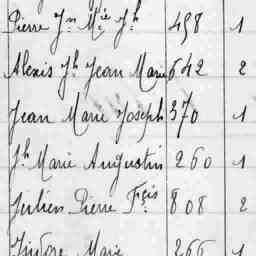 Pierre Jn Mie Jh 498 1
Alexis Jh Jean Marie 642 2
Jean Marie Joseph 370 1
Jh Marie Augustin 260 1
Julien Pierre Fçis 808 2
Isidore Marie 266 1